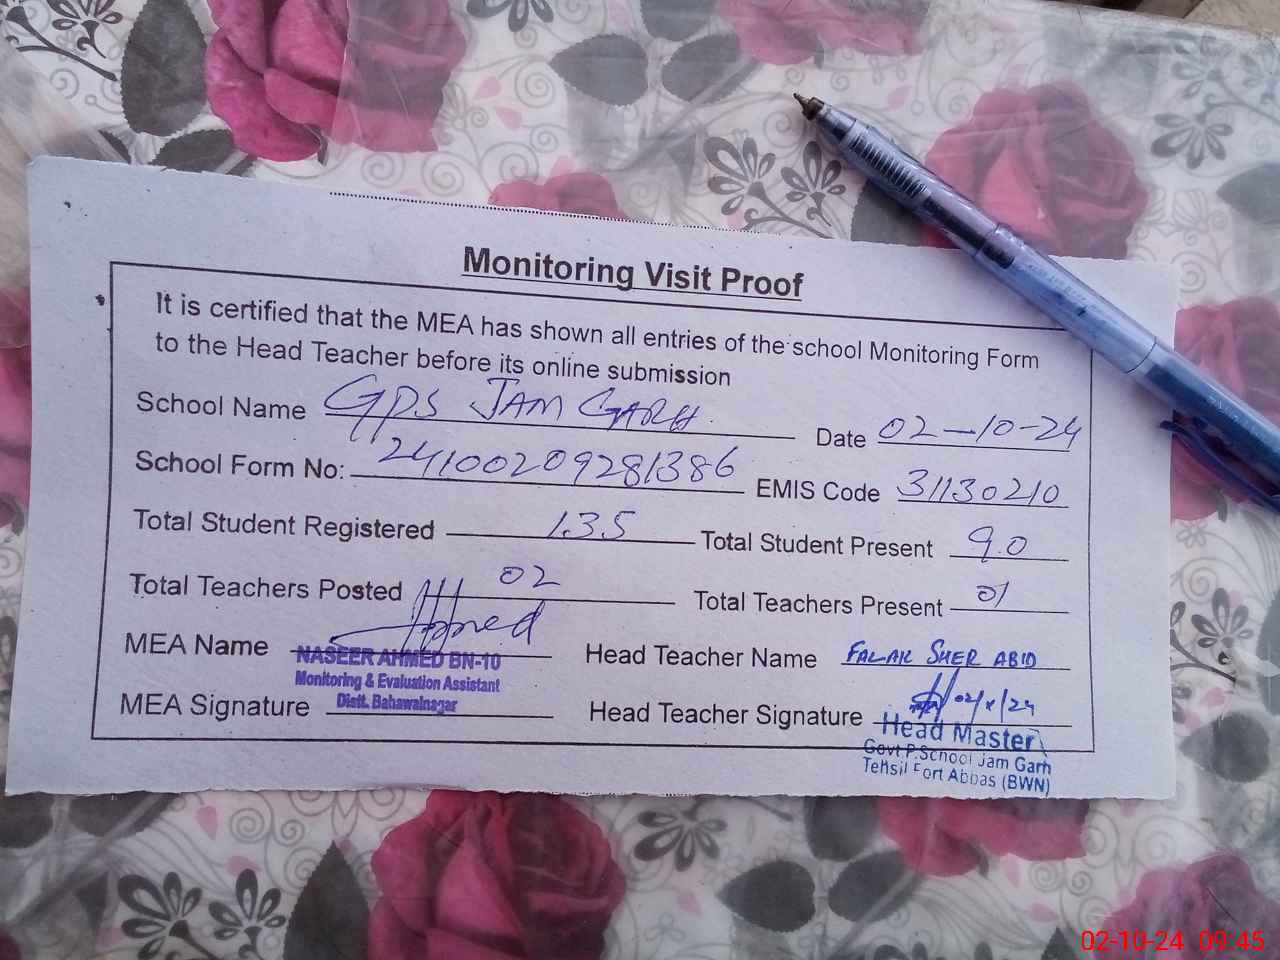 Monitoring Visit Proof
It is certified that the MEA has shown all entries of the school Monitoring Form
to the Head Teacher before its online submission
School Name GPS JAM GARH. Date 02-10-24
School Form No: 24100209281386 EMIS Code 31130210
Total Student Registered 135 Total Student Present 90
Total Teachers Posted 02 Total Teachers Present 01
MEA Name Head Teacher Name FALAK SHER ABID
NASEER AHMED BN-10
Monitoring & Evaluation Assistant
Distt. Bahawalnagar
MEA Signature Head Teacher Signature 02/x/24
Head Master
Govt P.School Jam Garh
Tehsil Fort Abbas (BWN)
02-10-24 09:45